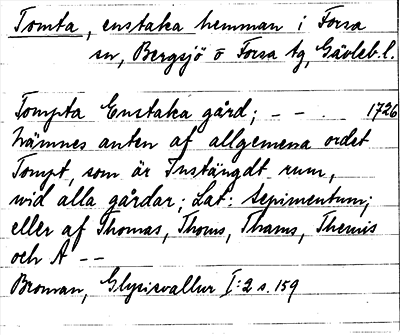 Tomta, enstaka hemman i Forsa
sn, Bergsjö o Forsa tg, Gävleb.l.
Tompta Enstaka gård; - - . 1726
Nämnes anten af allgemena ordet
Tompt, som är Instängdt rum,
wid alla gårdar; Lat: sepimentum;
eller af Thomas, Thoms, Thams, Themis
och A - -
Broman, Glysisvallur I:2 s. 159